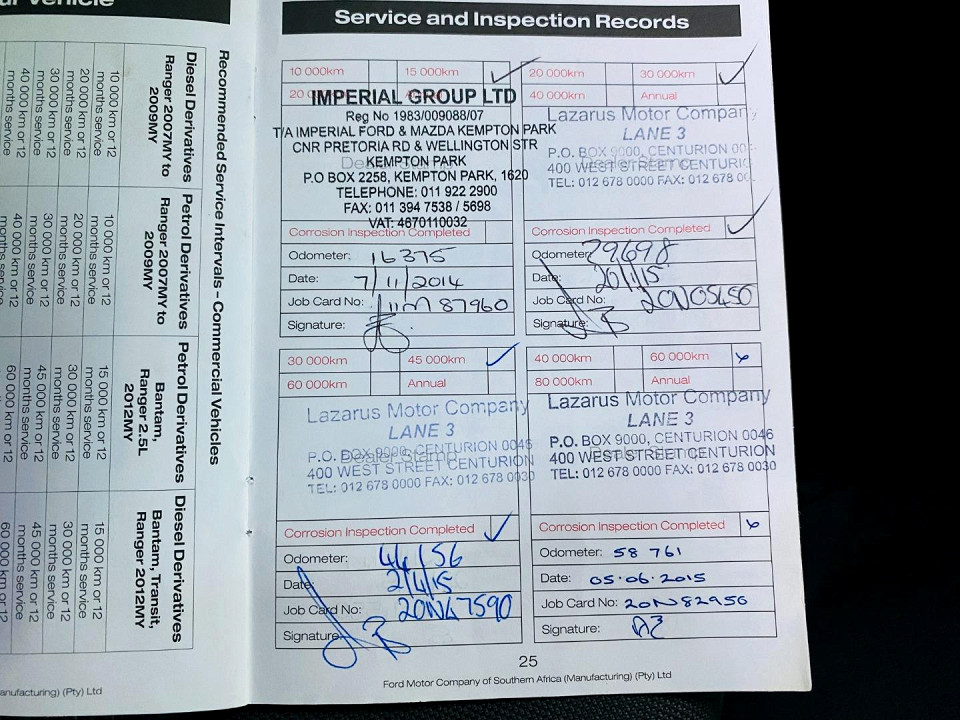 ur vehicle
Recommended Service Intervals - Commercial Vehicles
Diesel Derivatives
Ranger 2007MY to
2009MY
10 000 km or 12
months service
20 000 km or 12
months service
30 000 km or 12
months service
40 000 km or 12
months service
Petrol Derivatives
Ranger 2007MY to
2009MY
10 000 km or 12
months service
20 000 km or 12
months service
30 000 km or 12
months service
40 000 km or 12
months service
Petrol Derivatives
Bantam,
Ranger 2.5L
2012MY
15 000 km or 12
months service
30 000 km or 12
months service
45 000 km or 12
months service
60 000 km or 12
months service
Diesel Derivatives
Bantam, Transit,
Ranger 2012MY
15 000 km or 12
months service
30 000 km or 12
months service
45 000 km or 12
months service
60 000 km or 12
anufacturing) (Pty) Ltd
Service and Inspection Records
10 000km 15 000km
20
IMPERIAL GROUP LTD
Reg No 1983/009088/07
T/A IMPERIAL FORD & MAZDA KEMPTON PARK
CNR PRETORIA RD & WELLINGTON STR
KEMPTON PARK
P.O BOX 2258, KEMPTON PARK, 1620
TELEPHONE: 011 922 2900
FAX: 011 394 7538 / 5698
VAT: 4670110032
Corrosion Inspection Completed
Odometer: 16375
Date: 7/11/2014
Job Card No: 11M 87960
Signature:
20 000km 30 000km
40 000km Annual
Lazarus Motor Company
LANE 3
Dealer Stamp
P.O. BOX 9000, CENTURION 00
400 WEST STREET CENTURI
TEL: 012 678 0000 FAX: 012 678 00
Corrosion Inspection Completed
Odometer: 29698
Date: 20/1/15
Job Card No: 20N05450
Signature:
30 000km 45 000km
60 000km Annual
Lazarus Motor Company
LANE 3
Dealer Stamp
P.O. BOX 9000, CENTURION 0046
400 WEST STREET CENTURION
TEL: 012 678 0000 FAX: 012 678 0030
Corrosion Inspection Completed
Odometer: 44156
Date: 2/4/15
Job Card No: 20N47590
Signature:
40 000km 60 000km
80 000km Annual
Lazarus Motor Company
LANE 3
Dealer Stamp
P.O. BOX 9000, CENTURION 0046
400 WEST STREET CENTURION
TEL: 012 678 0000 FAX: 012 678 0030
Corrosion Inspection Completed
Odometer: 58 761
Date: 05.06.2015
Job Card No: 20N82956
Signature:
25
Ford Motor Company of Southern Africa (Manufacturing) (Pty) Ltd